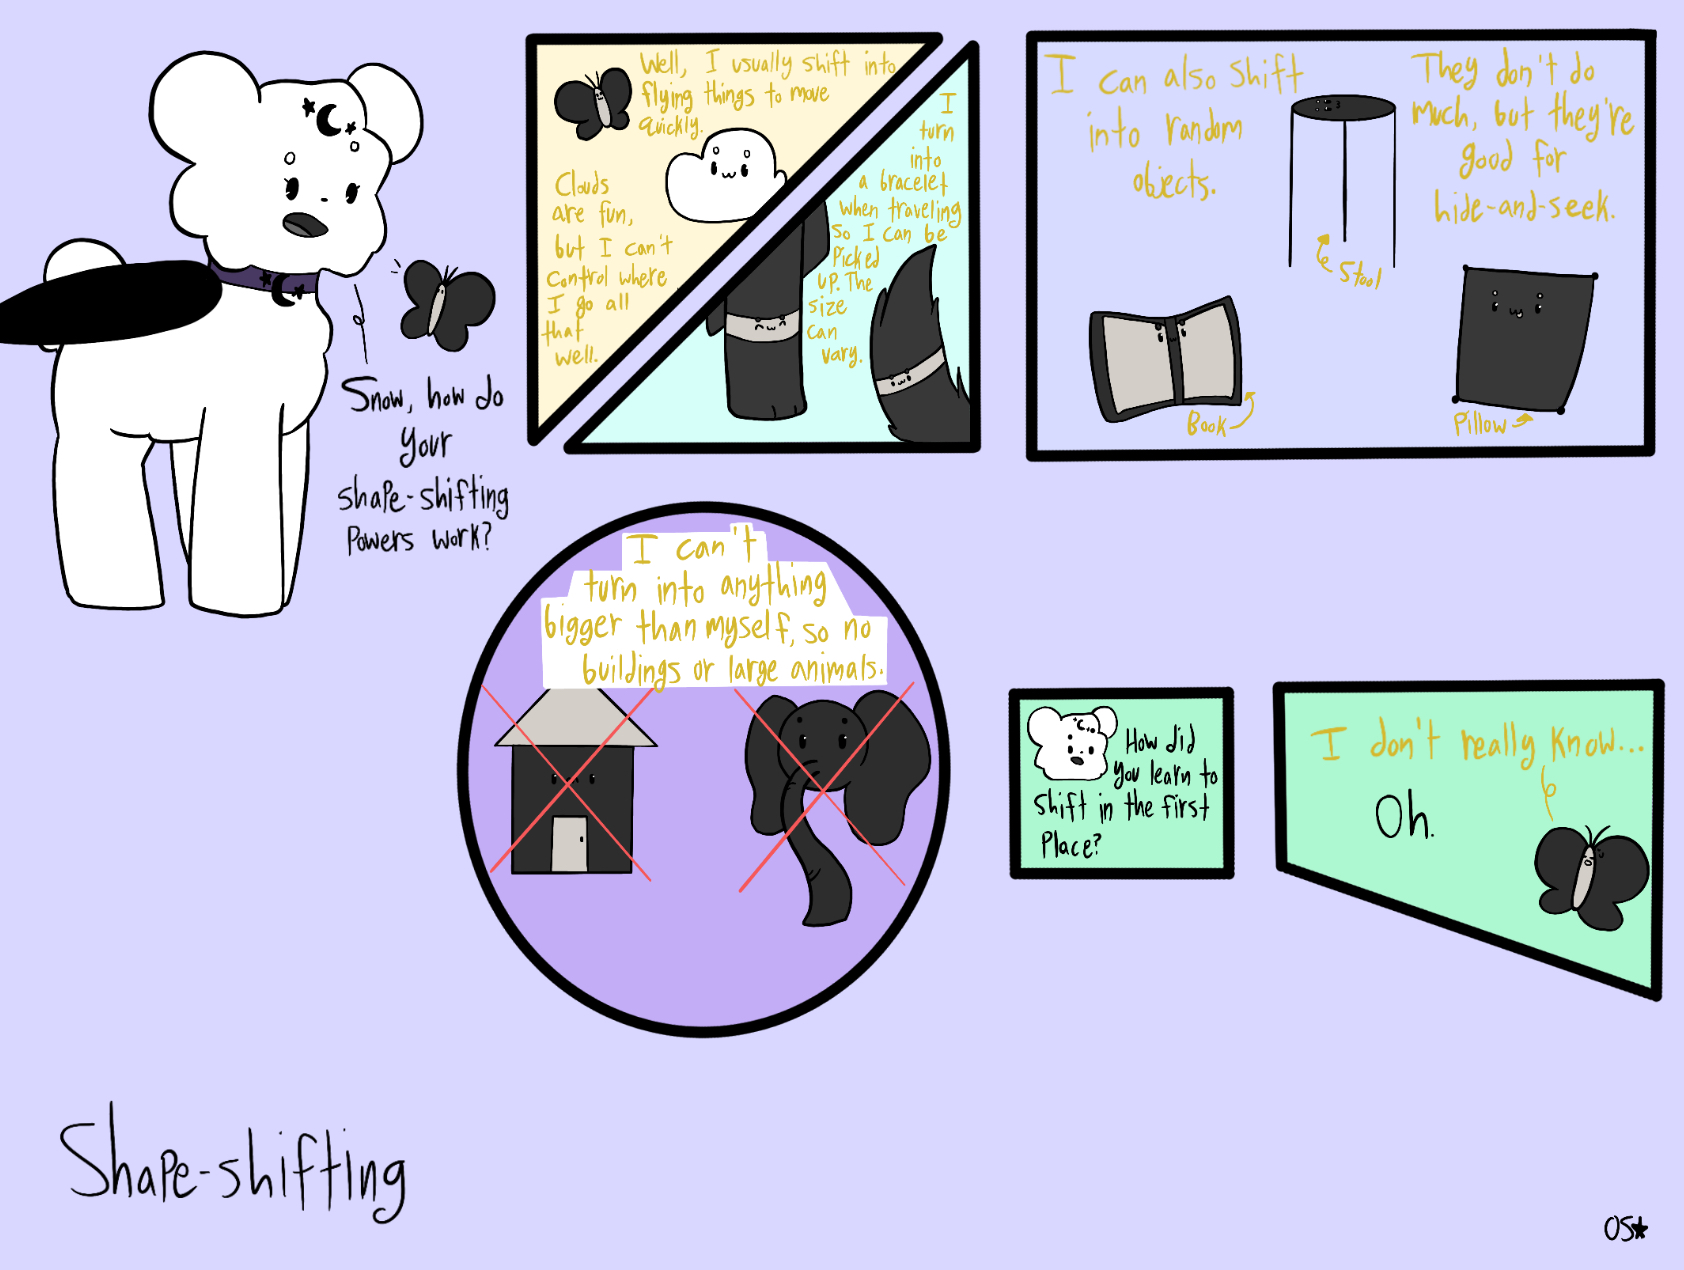 Snow, how do
your
shape-shifting
Powers work?
Well, I usually shift into
flying things to move
quickly.
Clouds
are fun,
but I can't
control where
I go all
that
well.
I
turn
into
a bracelet
when traveling
so I can be
Picked
up. The
size
can
vary.
I can also shift
into random
objects.
They don't do
much, but they're
good for
hide-and-seek.
Stool
Book
Pillow
I can't
turn into anything
bigger than myself, so no
buildings or large animals.
How did
you learn to
shift in the first
Place?
I don't really know...
Oh.
Shape-shifting
OS★